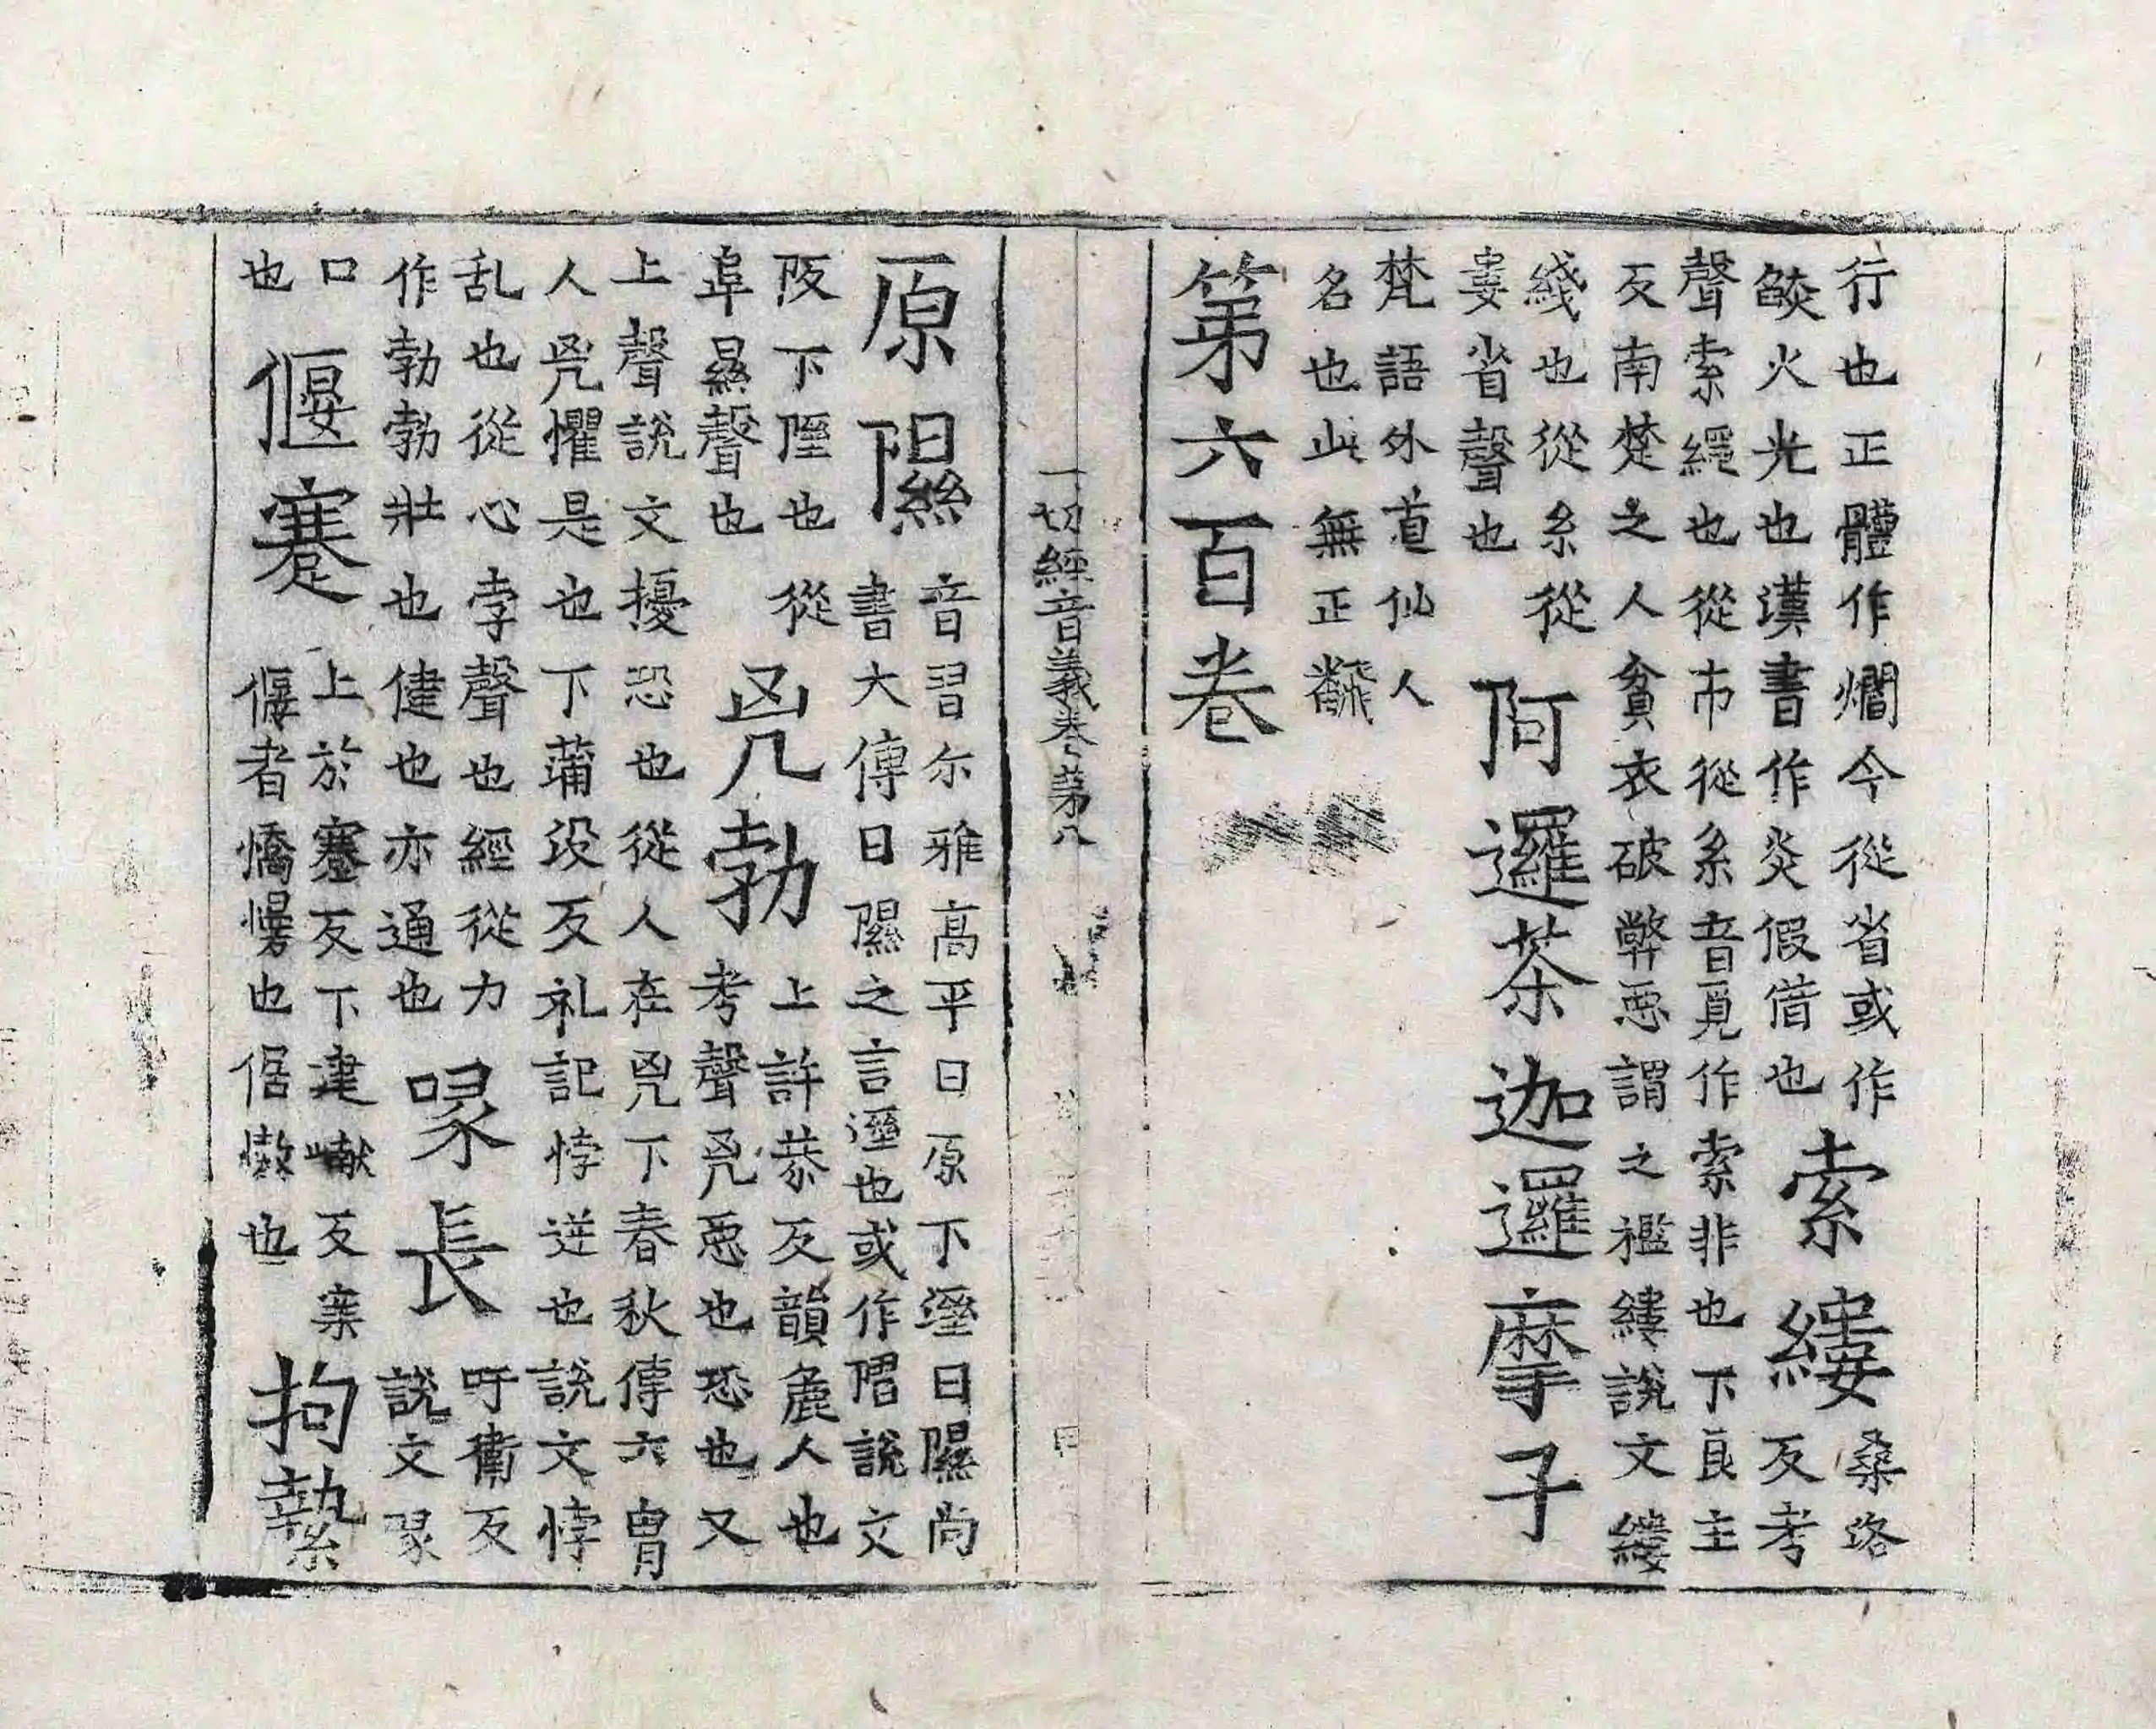 行也正體作爛今從省或作
餤火光也漢書作炎假借也
索縷
桑洛
反考
聲索繩也從市從糸音覓作索非也下良主
反南楚之人貧衣破弊惡謂之襤縷說文縷
綫也從糸從
婁省聲也
阿邏荼迦邏邏摩子
梵語外道仙人
名也此無正翻
第六百卷
一切經音義卷第八
原隰
音習尒雅高平曰原下溼曰隰尚
書大傳曰隰之言溼也或作隰說文
阪下隰也從
𨸏㬎聲也
兇勃
上許恭反韻麁人也
考聲兇惡也恐也又
上聲說文擾恐也從人在兇下春秋傳六曹
人兇懼是也下蒲没反礼記悖逆也說文悖
乱也從心孛聲也經從力
作勃勃壯也健也亦通也
喙長
吁衞反
說文喙
口
也
偃蹇
上於蹇反下建巘反寋
偃者憍慢也倨憿也
拘縶